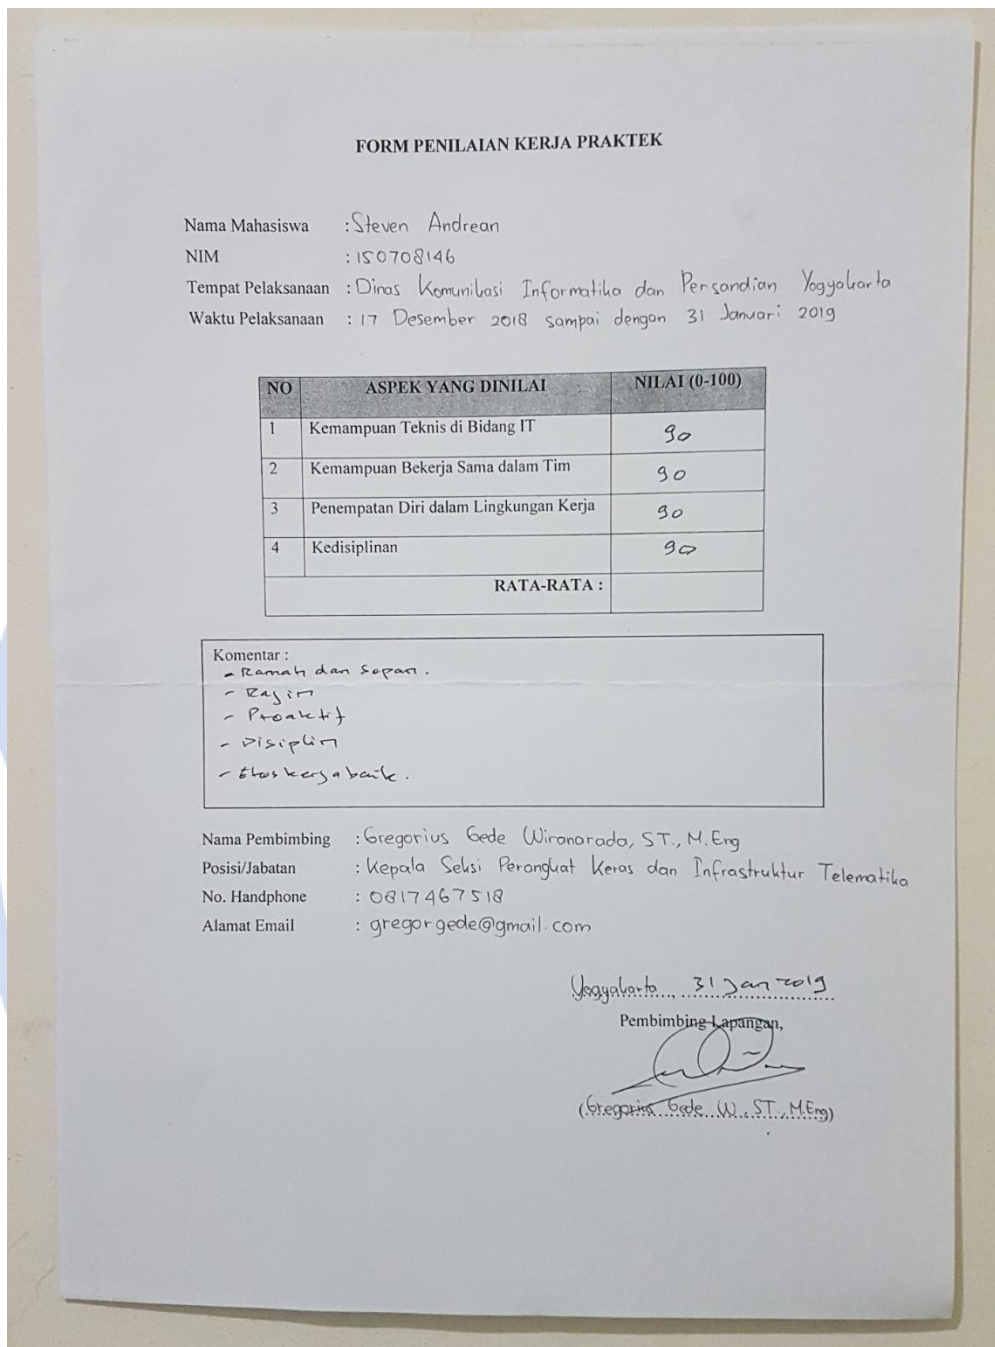 FORM PENILAIAN KERJA PRAKTEK
Nama Mahasiswa : Steven Andrean
NIM : 150708146
Tempat Pelaksanaan : Dinas Komunikasi Informatika dan Persandian Yogyakarta
Waktu Pelaksanaan : 17 Desember 2018 sampai dengan 31 Januari 2019
NO ASPEK YANG DINILAI NILAI (0-100)
1 Kemampuan Teknis di Bidang IT 90
2 Kemampuan Bekerja Sama dalam Tim 90
3 Penempatan Diri dalam Lingkungan Kerja 90
4 Kedisiplinan 90
RATA-RATA :
Komentar :
- Ramah dan Sopan.
- Rajin
- Proaktif
- Disiplin
- Etos kerja baik.
Nama Pembimbing : Gregorius Gede Wiranarada, ST., M.Eng
Posisi/Jabatan : Kepala Seksi Perangkat Keras dan Infrastruktur Telematika
No. Handphone : 0817467518
Alamat Email : gregorgede@gmail.com
Yogyakarta, 31 Jan 2019
Pembimbing Lapangan,
(Gregorius Gede W., ST., M.Eng)